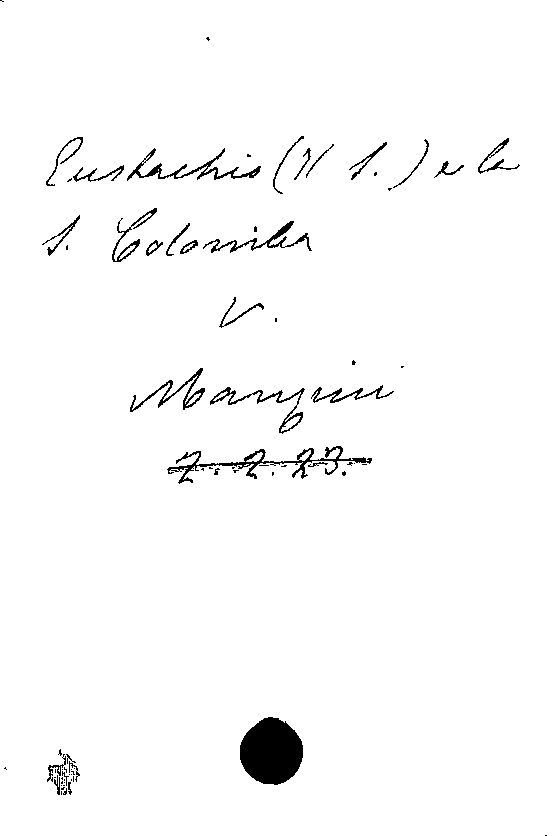 Eustachio (Il S.) e la
S. Colomba
V.
Mangini
2.2.23.